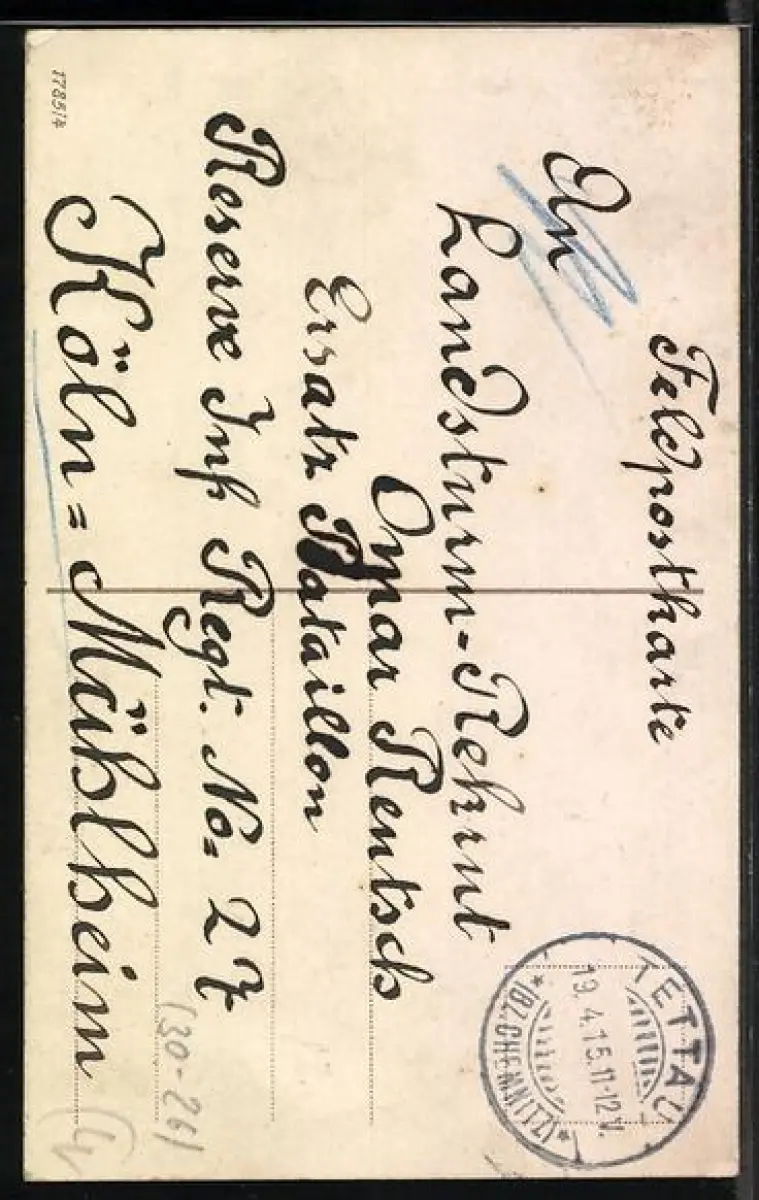 Feldpostkarte
An
Landsturm-Rekrut
Oskar Rentsch
Ersatz Bataillon
Reserve Inf. Regt. No= 27
Köln=Mühlheim
TETTAU
19.4.15.11-12V.
*(BZ.CHEMNITZ)*
(30-26)
17851/4